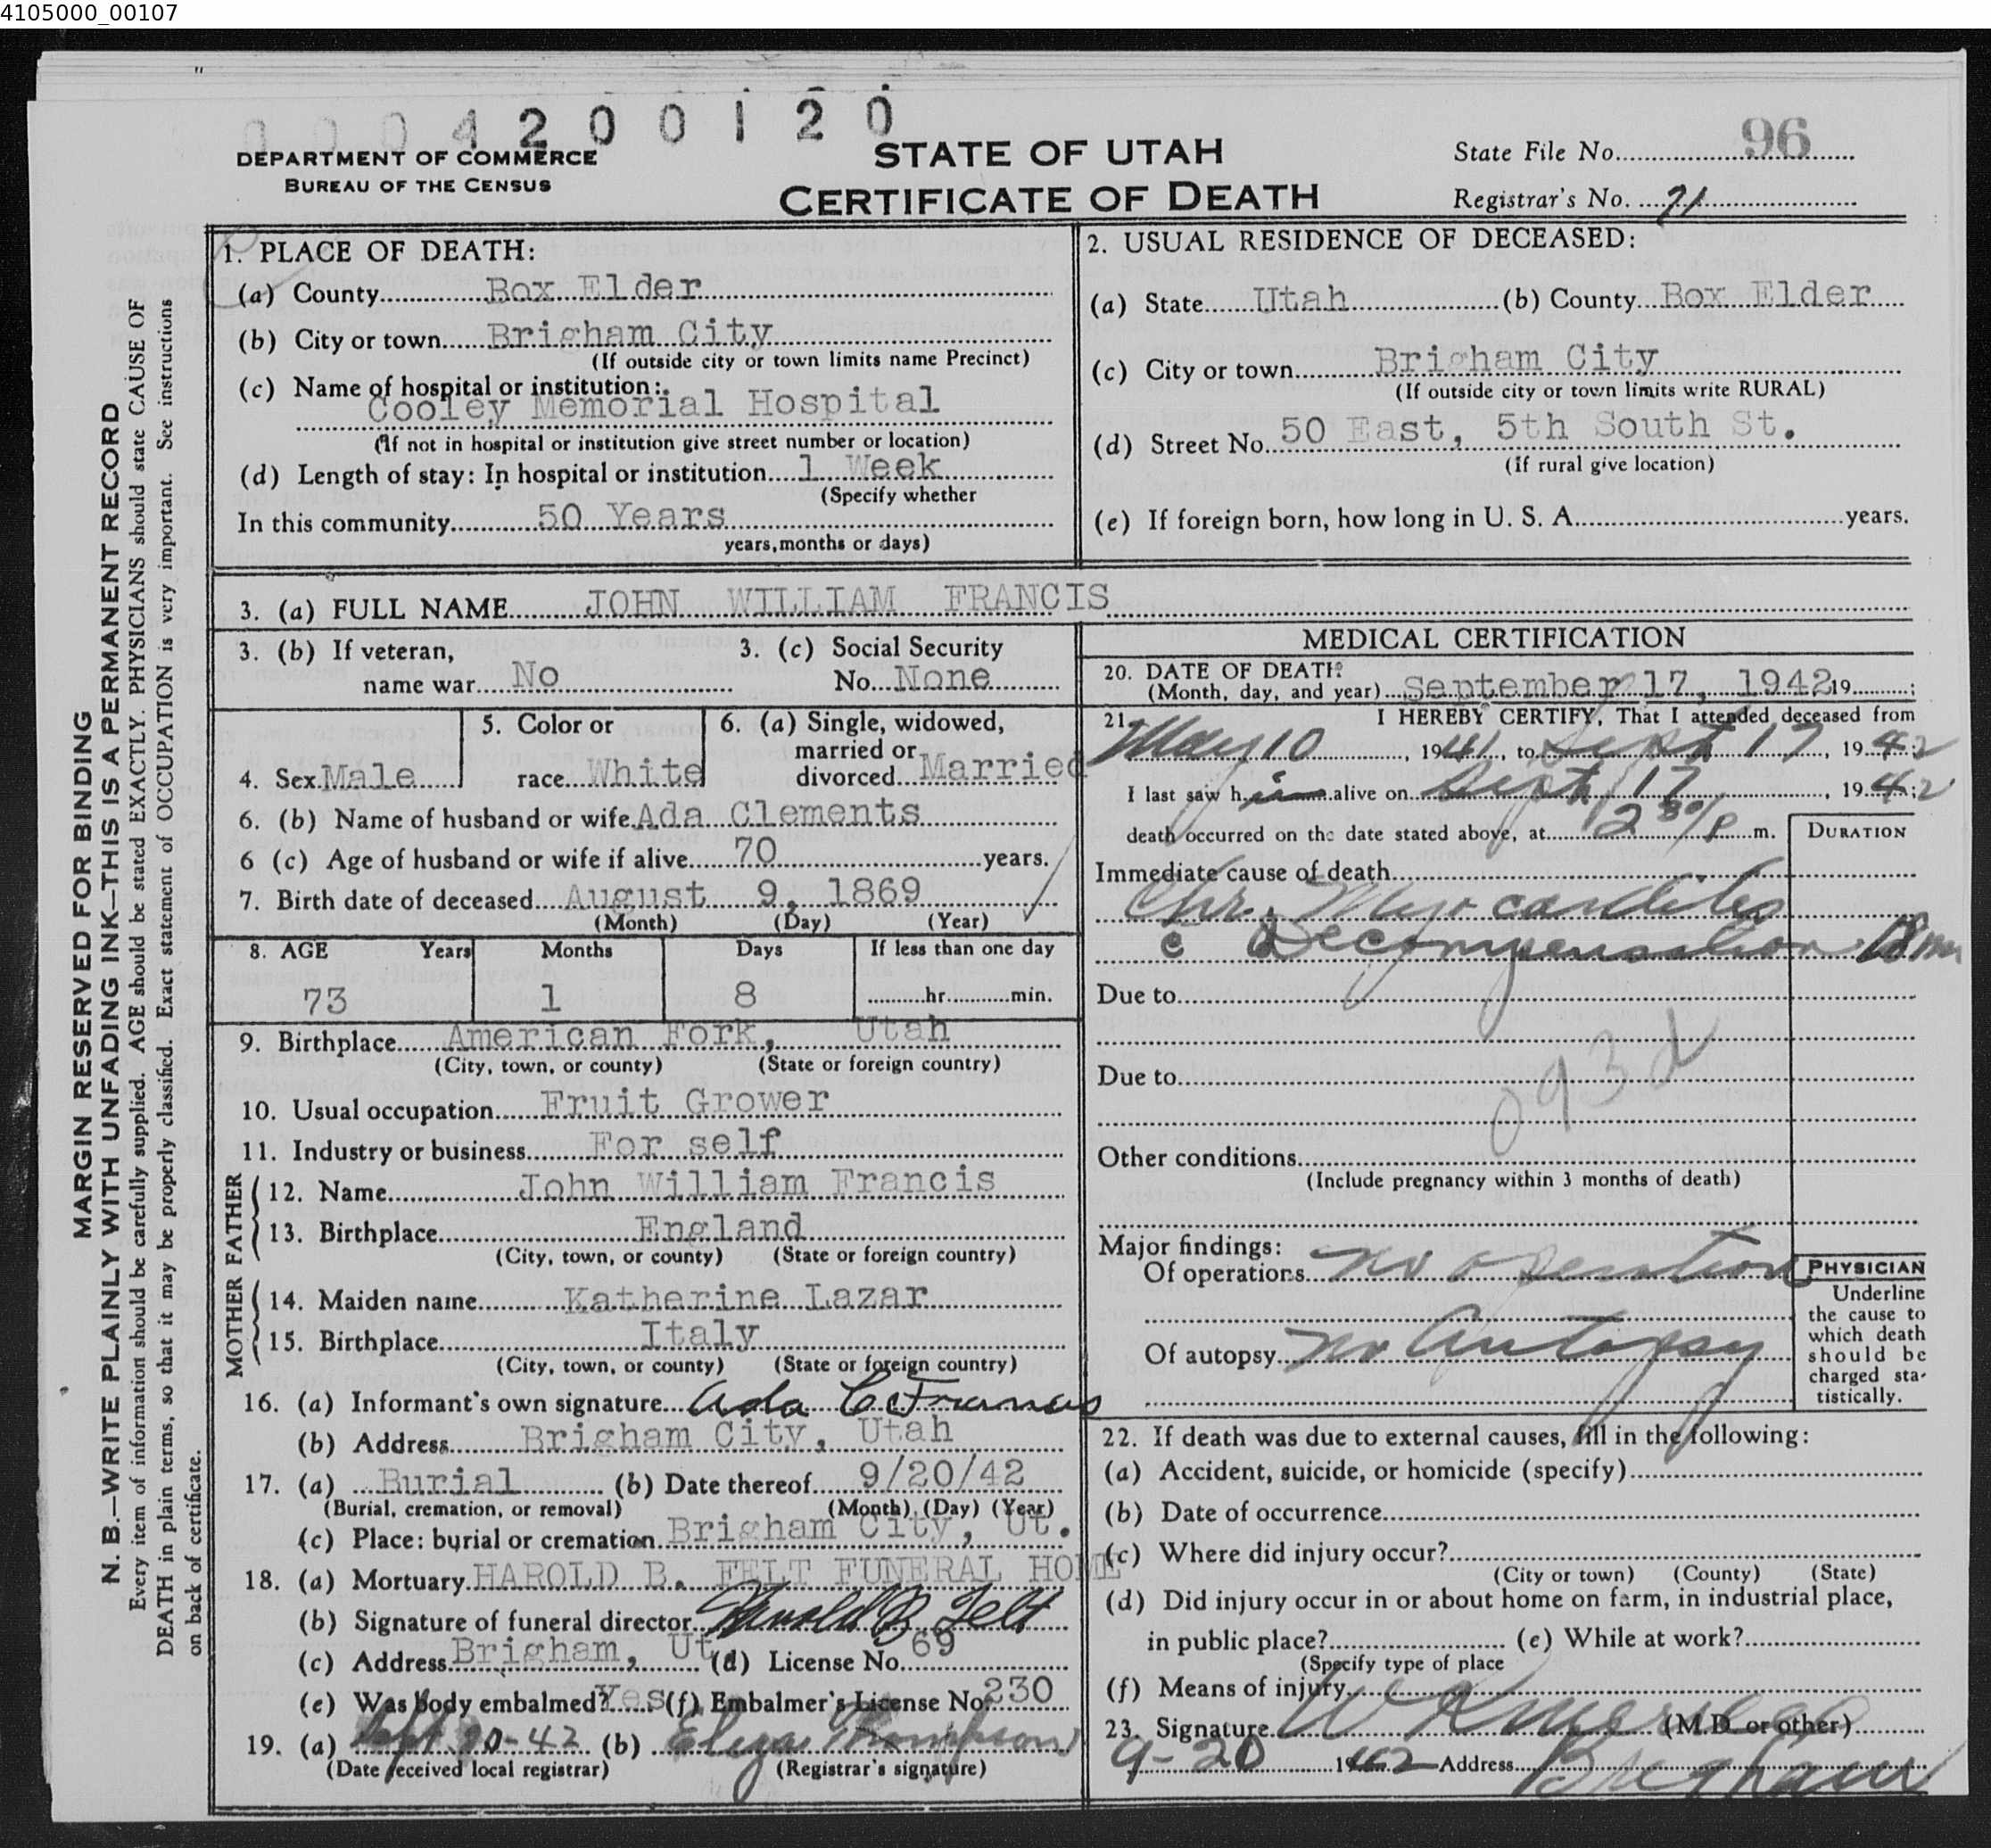 4105000_00107
0004200120
DEPARTMENT OF COMMERCE
BUREAU OF THE CENSUS
STATE OF UTAH
CERTIFICATE OF DEATH
State File No. 96
Registrar's No. 71
MARGIN RESERVED FOR BINDING
N. B.—WRITE PLAINLY WITH UNFADING INK—THIS IS A PERMANENT RECORD
Every item of information should be carefully supplied. AGE should be stated EXACTLY. PHYSICIANS should state CAUSE OF
DEATH in plain terms, so that it may be properly classified. Exact statement of OCCUPATION is very important. See instructions
on back of certificate.
1. PLACE OF DEATH:
(a) County Box Elder
(b) City or town Brigham City
(If outside city or town limits name Precinct)
(c) Name of hospital or institution:
Cooley Memorial Hospital
(If not in hospital or institution give street number or location)
(d) Length of stay: In hospital or institution 1 Week
(Specify whether
In this community 50 Years
years, months or days)
2. USUAL RESIDENCE OF DECEASED:
(a) State Utah (b) County Box Elder
(c) City or town Brigham City
(If outside city or town limits write RURAL)
(d) Street No. 50 East, 5th South St.
(If rural give location)
(e) If foreign born, how long in U. S. A. years.
3. (a) FULL NAME JOHN WILLIAM FRANCIS
3. (b) If veteran, 3. (c) Social Security
name war No No. None
4. Sex Male
5. Color or
race White
6. (a) Single, widowed,
married or
divorced Married
6. (b) Name of husband or wife Ada Clements
6 (c) Age of husband or wife if alive 70 years.
7. Birth date of deceased August 9, 1869
(Month) (Day) (Year)
8. AGE Years Months Days If less than one day
73 1 8 hr. min.
9. Birthplace American Fork, Utah
(City, town, or county) (State or foreign country)
10. Usual occupation Fruit Grower
11. Industry or business For self
FATHER
12. Name John William Francis
13. Birthplace England
(City, town, or county) (State or foreign country)
MOTHER
14. Maiden name Katherine Lazar
15. Birthplace Italy
(City, town, or county) (State or foreign country)
16. (a) Informant's own signature Ada C. Francis
(b) Address Brigham City, Utah
17. (a) Burial (b) Date thereof 9/20/42
(Burial, cremation, or removal) (Month) (Day) (Year)
(c) Place: burial or cremation Brigham City, Ut.
18. (a) Mortuary HAROLD B. FELT FUNERAL HOME
(b) Signature of funeral director Harold B. Felt
(c) Address Brigham, Ut. (d) License No. 69
(e) Was body embalmed? Yes (f) Embalmer's License No. 230
19. (a) Sept 20-42 (b) Eliza Thompson
(Date received local registrar) (Registrar's signature)
MEDICAL CERTIFICATION
20. DATE OF DEATH:
(Month, day, and year) September 17, 1942 19 ;
21. I HEREBY CERTIFY, That I attended deceased from
May 10, 1941, to Sept 17, 1942;
I last saw him alive on Sept 17, 1942;
death occurred on the date stated above, at 12 30/P m.
DURATION
Immediate cause of death
Chr. Myocarditis
c Decompensation 18 mo
Due to
Due to
093d
Other conditions
(Include pregnancy within 3 months of death)
Major findings:
Of operations no operation
Of autopsy no Autopsy
PHYSICIAN
Underline
the cause to
which death
should be
charged sta-
tistically.
22. If death was due to external causes, fill in the following:
(a) Accident, suicide, or homicide (specify)
(b) Date of occurrence
(c) Where did injury occur?
(City or town) (County) (State)
(d) Did injury occur in or about home on farm, in industrial place,
in public place? (e) While at work?
(Specify type of place
(f) Means of injury
23. Signature (M.D. or other)
9-20 1942 Address Brigham